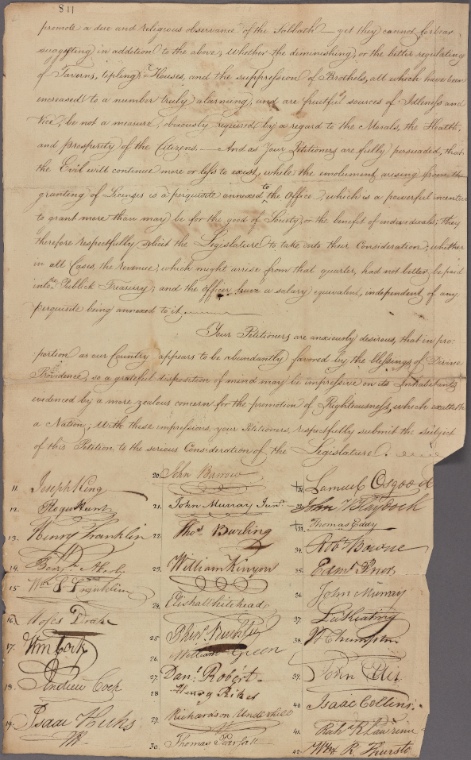 811
promote a due and religious observance of the Sabbath — yet they cannot forbear
suggesting in addition to the above, whether the diminishing, or the better regulating
of Taverns, tipling Houses, and the suppression of Brothels, all which have been
encreased to a number truly alarming, and are fruitful sources of Idleness and
Vice, be not a measure, obviously required, by a regard to the Morals, the Health,
and prosperity of the Citizens.— And as Your Petitioners are fully persuaded, that
the Evil will continue more or less to exist, while the emolument arising from the
granting of Licenses is a perquisite annexed to the Office, which is a powerful
to grant more than may be for the good of Society, or the benefit of individuals; they
therefore respectfully solicit the Legislature to take into their Consideration, whether
in all Cases, the Revenue, which might arise from that quarter, had not better be paid
into Publick Treasury; and the officer have a salary equivalent, independent of any
perquisite being annexed to it.
Your Petitioners are anxiously desirous, that in pro=
portion as our Country appears to be abundantly favored by the blessings of Divine
Providence, so a grateful disposition of mind may be impressive in its Inhabitants,
evidenced by a more zealous concern for the promotion of Righteousness, which exalteth
a Nation; With these impressions, your Petitioners, respectfully submit the subject
of this Petition to the serious Consideration of the Legislature.
11 Joseph King
12
13. Henry Franklin
14
15 Wm S Franklin
16
17. Wm Cock
18. Andrew Cock
19. Isaac Hicks
20. John Browne
21. John Murray Junr
22. Thos Burling
23. William Kinyon
24. Elisha Whitehead
25
26 William Green
27 Danl Robert
28 Henry Riker
29. Richardson Underhill
30. Thomas
31 Samuel Osgood
32 John
33. Thomas
34. Robt Bowne
35 Edmd
36 John Murray
37
38
39 John
40 Isaac Collins
41. Richd R Lawrence
42 R Thursto